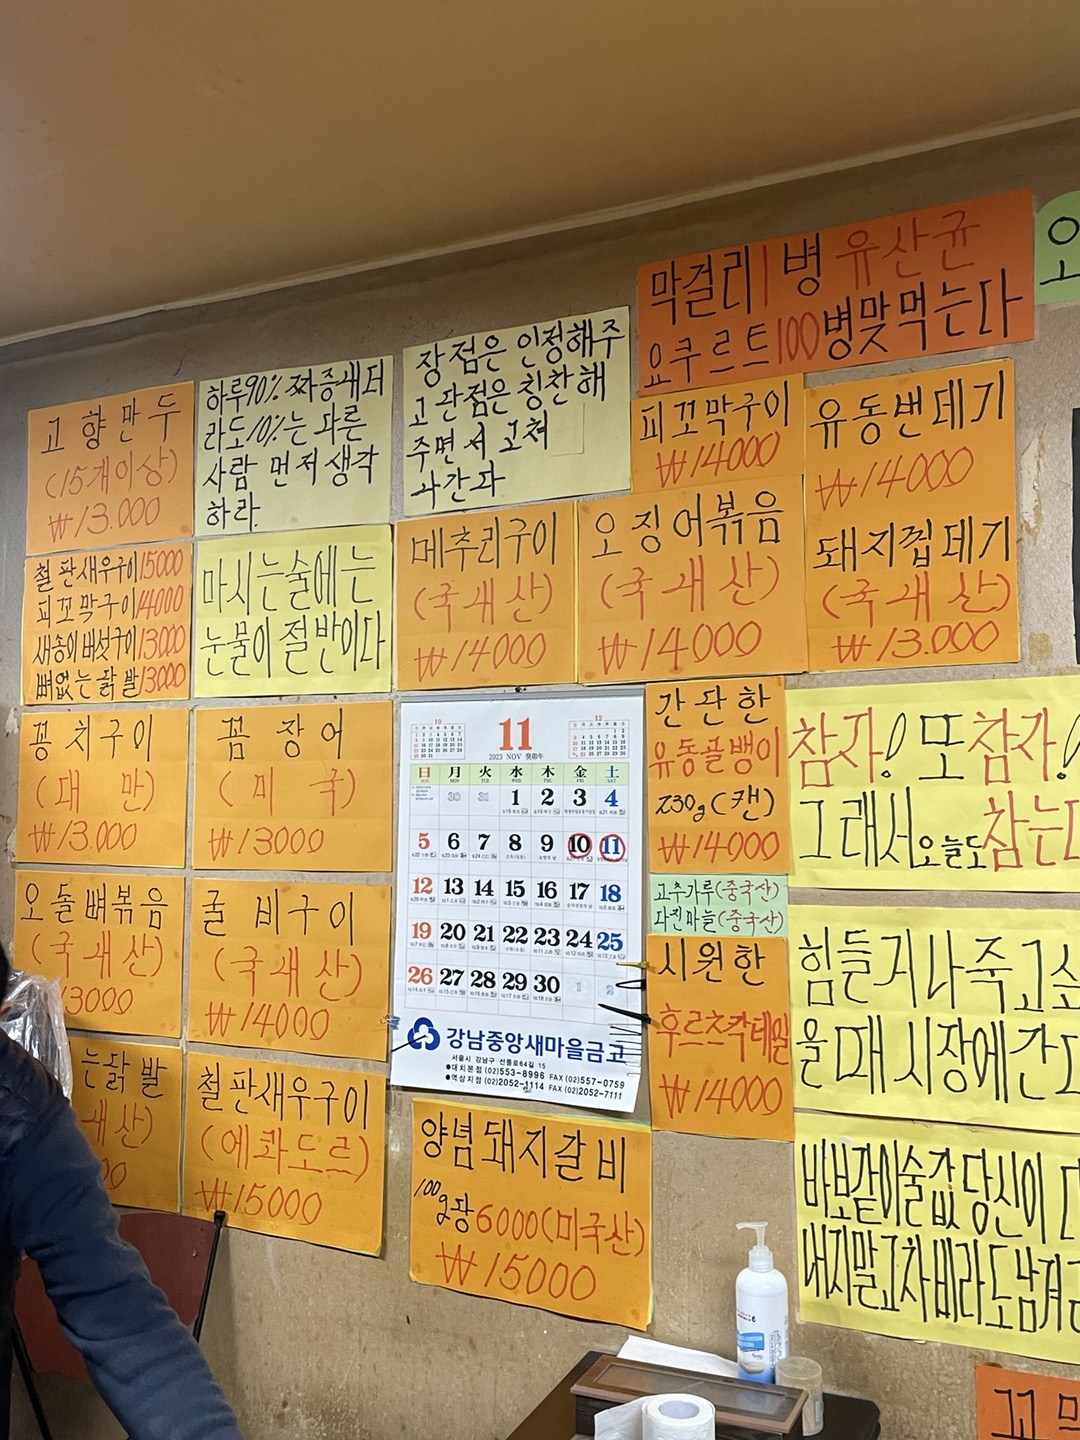 막걸리 1병 유산균
요쿠르트 100병맞먹는다
고향만두
(15개이상)
₩13.000
하루90% 짜증내더
라도 10%는 다른
사람 먼저 생각
하라.
장점은 인정해주
고 단점은 칭찬해
주면서 고쳐
나간다
피꼬막구이
₩14000
유동번데기
₩14000
돼지껍데기
(국내산)
₩13.000
철판새우구이15000
피꼬막구이14000
새송이버섯구이13000
뼈없는닭발13000
마시는술에는
눈물이 절반이다
메추리구이
(국내산)
₩14000
오징어볶음
(국내산)
₩14000
꽁치구이
(대만)
₩13.000
꼼장어
(미국)
₩13000
11
2023 NOV 癸卯年
10
12
日 月 火 水 木 金 土
SUN MON TUE WED THU FRI SAT
30 31 1 2 3 4
5 6 7 8 9 10 11
12 13 14 15 16 17 18
19 20 21 22 23 24 25
26 27 28 29 30 1 2
강남중앙새마을금고
서울시 강남구 선릉로64길 15
●대치본점 (02)553-8996 FAX (02)557-0759
●역삼지점 (02)2052-1114 FAX (02)2052-7111
간단한
유동골뱅이
230g(캔)
₩14000
참자! 또 참자!
그래서 오늘도 참는다
오돌뼈볶음
(국내산)
13000
굴비구이
(국내산)
₩14000
고추가루(중국산)
다진마늘(중국산)
시원한
후르츠칵테일
₩14000
힘들거나 죽고싶
을때 시장에 간다
는닭발
내산)
00
철판새우구이
(에콰도르)
₩15000
양념돼지갈비
100g당 6000(미국산)
₩15000
바보같이술값 당신이
내지말고차베라도남겨
꼬막
오